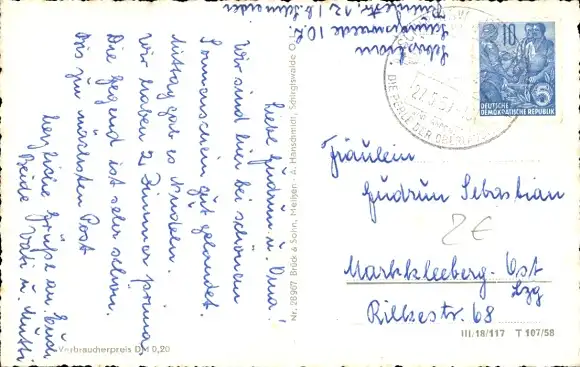 Liebe Gudrun u. Oma!
Wir sind hier bei schönem
Sonnenschein gut gelandet.
Mittag gab es Nudeln.
Wir haben 2 Zimmer prima
Die Gegend ist sehr schön.
Bis zur nächsten Post
herzliche Grüße an Euch
Beide Vati u. Mutti
Sebastian
10
DEUTSCHE
DEMOKRATISCHE REPUBLIK
5
DIE PERLE DER
Fräulein
Gudrun Sebastian
2€
Markkleeberg-Ost
Lzg
Rilkestr. 68
Nr. 28907 Brück & Sohn, Meißen - A. Hanschmidt, Sohrgiswalde O. L.
Verbraucherpreis DM 0,20
III/18/117 T 107/58